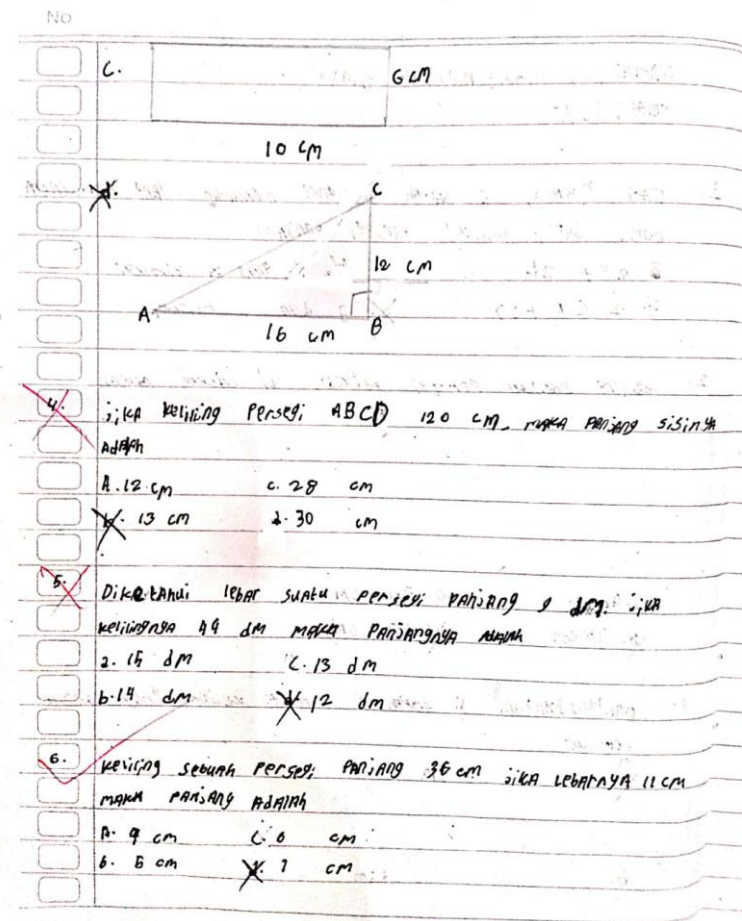 No
C. 6 cm
10 cm
d.
C
12 cm
A 16 cm B
4. jika keliling persegi ABCD 120 cm maka panjang sisinya
adalah
A. 12 cm c. 28 cm
b. 13 cm d. 30 cm
5. Diketahui lebar suatu persegi panjang 9 dm. jika
kelilingnya 44 dm maka panjangnya adalah
a. 15 dm C. 13 dm
b. 14 dm d. 12 dm
6. keliling sebuah persegi panjang 36 cm jika lebarnya 11 cm
maka panjang adalah
A. 9 cm C. 8 cm
b. 6 cm d. 7 cm